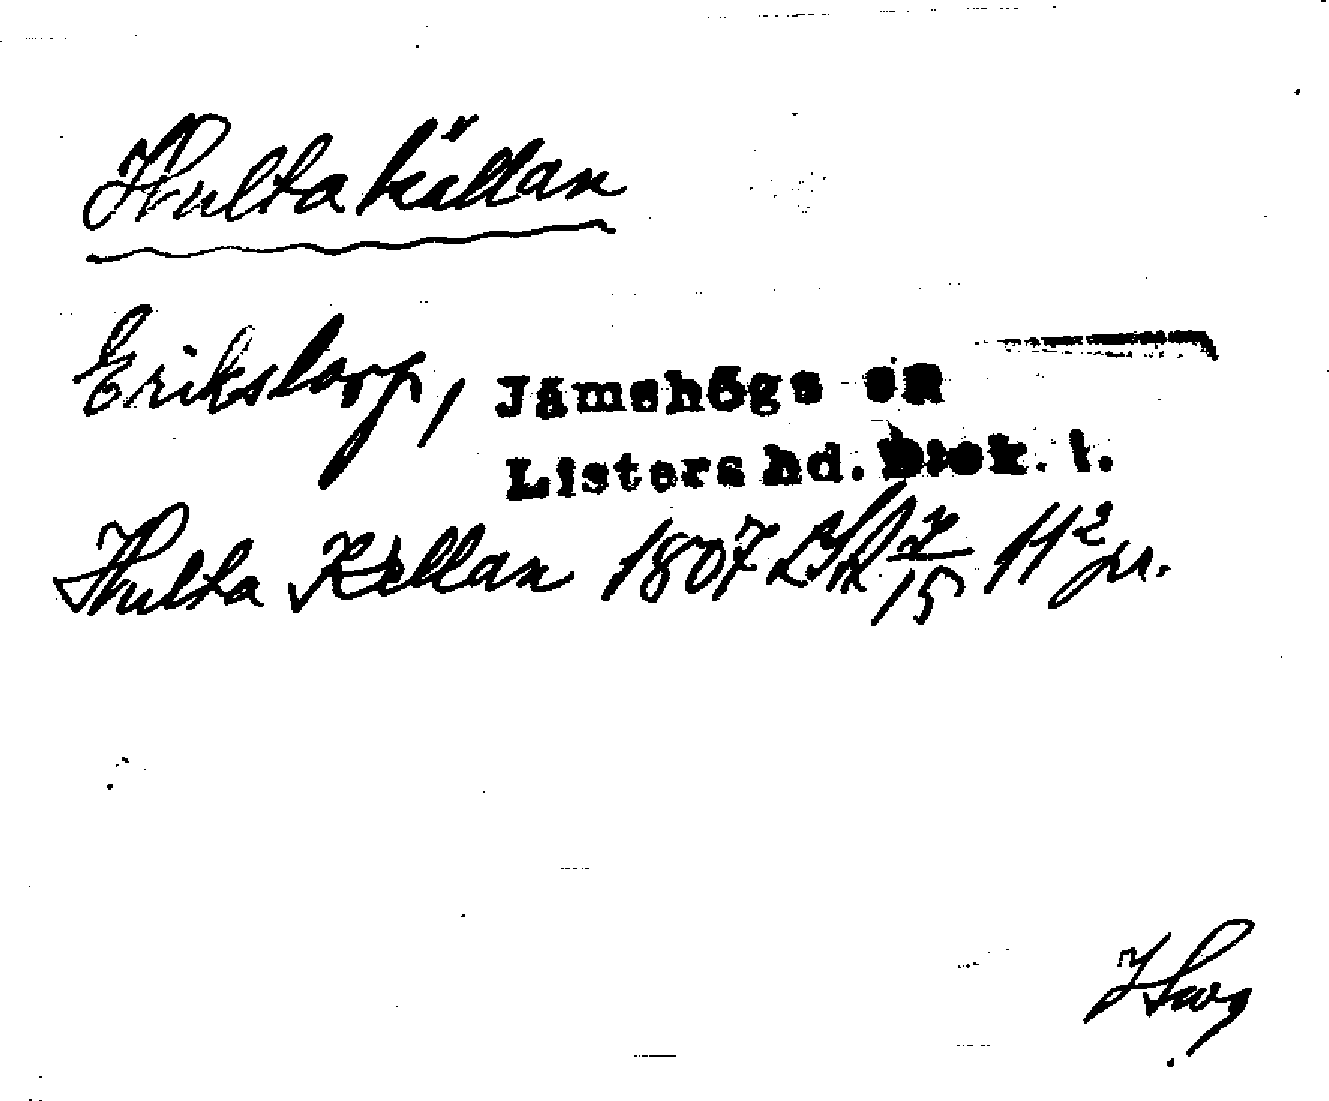 Hultakällan
Erikstorp, Jämshögs sn
Listers hd. Blek. l.
Hulta Källan 1807 LSA 11² jr.